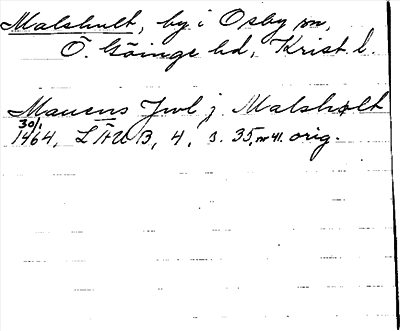 Malshult, by i Osby sn,
Ö. Göinge hd, Krist. l.
Mauens Jwl j Malsholt
30/1
1464, LÄUB, 4, s. 35, nr 41. orig.